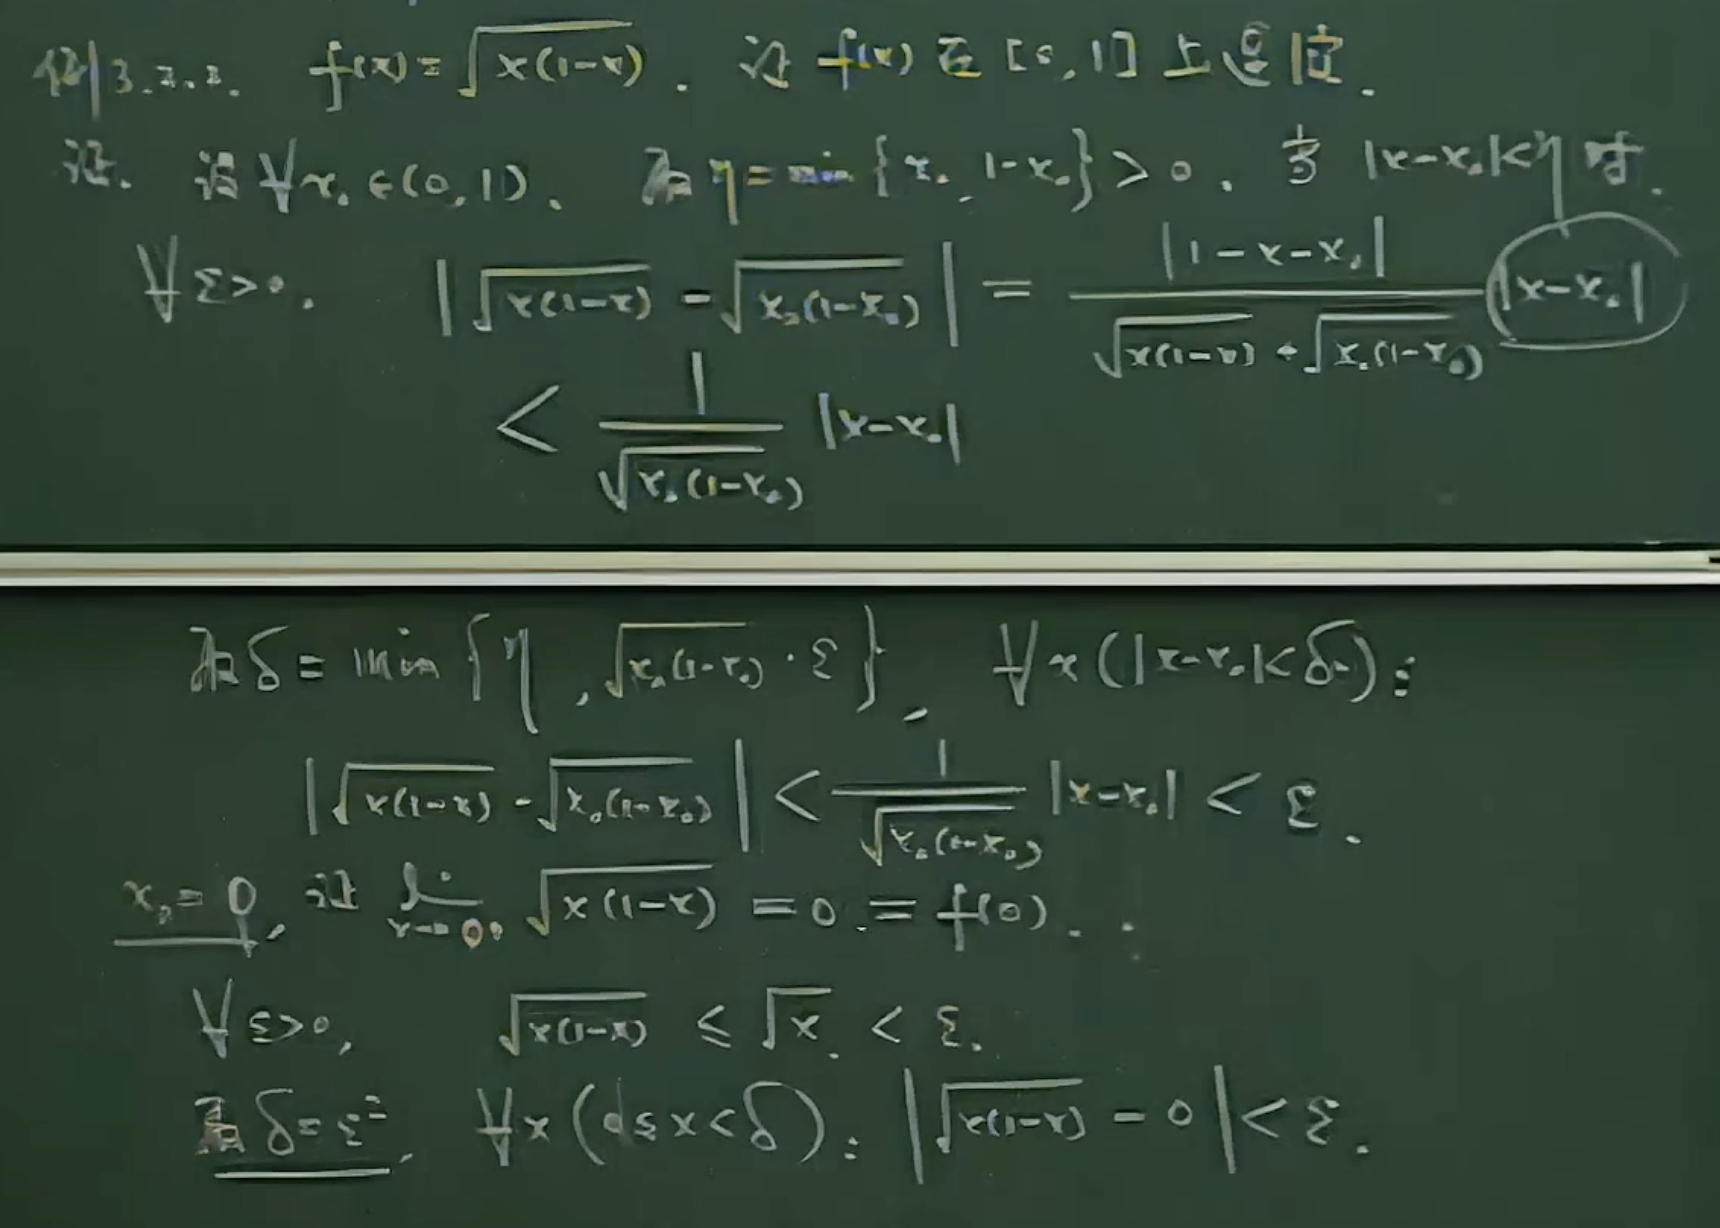 例3.2.2. f(x)=√(x(1-x)). 证 f(x) 在 [0,1] 上连续.
证. 设 ∀x₀∈(0,1). 取 η=min{x₀, 1-x₀}>0. 当 |x-x₀|<η 时.
∀ε>0. |√(x(1-x)) - √(x₀(1-x₀))| = |1-x-x₀| / (√(x(1-x)) + √(x₀(1-x₀))) |x-x₀|
< 1/√(x₀(1-x₀)) |x-x₀|
取 δ = min{η, √(x₀(1-x₀))·ε}, ∀x(|x-x₀|<δ):
|√(x(1-x)) - √(x₀(1-x₀))| < 1/√(x₀(1-x₀)) |x-x₀| < ε.
x₀=0, 证 lim x→0+ √(x(1-x)) = 0 = f(0).
∀ε>0, √(x(1-x)) ≤ √x < ε.
取 δ=ε², ∀x(0≤x<δ): |√(x(1-x)) - 0| < ε.